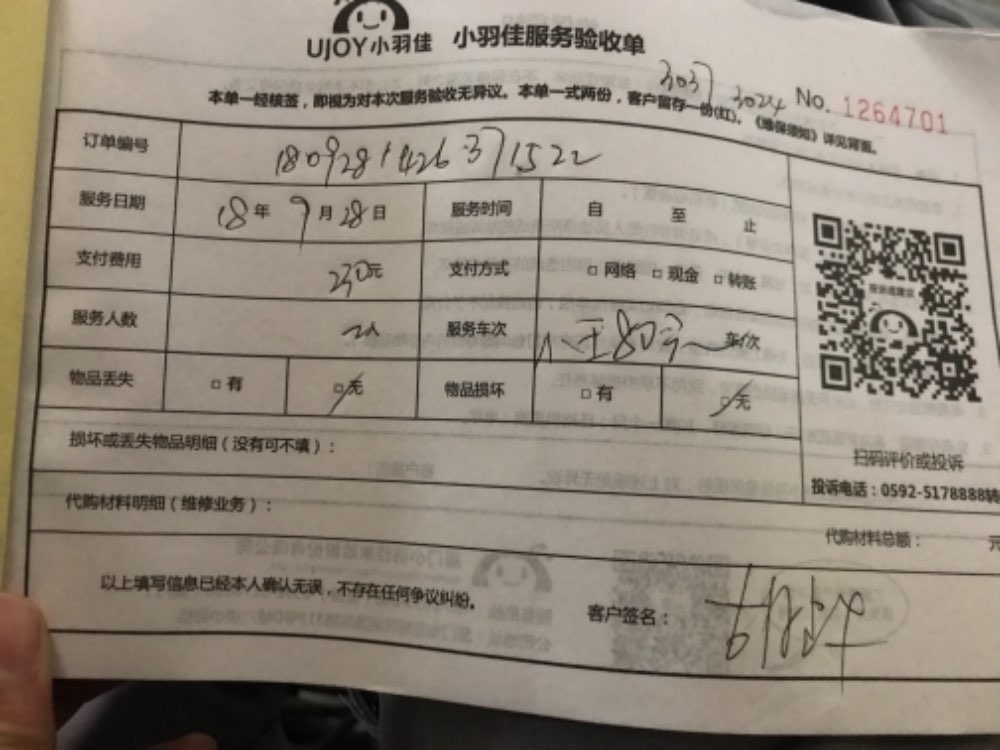 UJOY小羽佳 小羽佳服务验收单
3037 3024 No. 1264701
本单一经核签，即视为对本次服务验收无异议。本单一式两份，客户留存一份(红)。《维保须知》详见背面。
订单编号 1809281426371522
服务日期 18年9月28日 服务时间 自 至 止
支付费用 230元 支付方式 □网络 □现金 □转账
服务人数 2人 服务车次 车/次
物品丢失 □有 □无 物品损坏 □有 □无
损坏或丢失物品明细（没有可不填）：
扫码评价或投诉
投诉电话：0592-5178888转
代购材料明细（维修业务）：
代购材料总额： 元
以上填写信息已经本人确认无误，不存在任何争议纠纷。
客户签名：